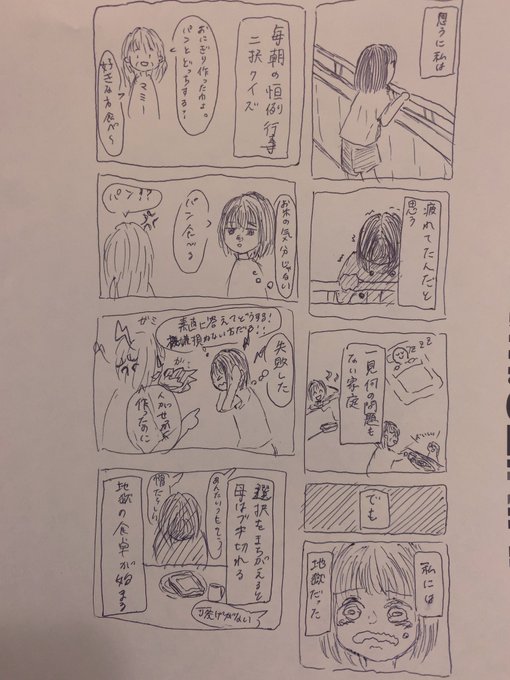 思うに私は
疲れてたんだと
思う
一見何の問題も
ない家庭
zzz
でも
私には
地獄だった
毎朝の恒例行事
二択クイズ
おにぎり作ったわよ。
パンとどっちする?
マミー
好きな方食べな
お米の気分じゃない
パン食べる
パン!?
失敗した
素直に答えてどうする!
機嫌損わない方だろ!!
ガシ
人がせっかく
作ったのに
選択をまちがえると
母はブチ切れる
あんたいつもそう
憎たらしい
可愛げがない
地獄の食卓が始まる